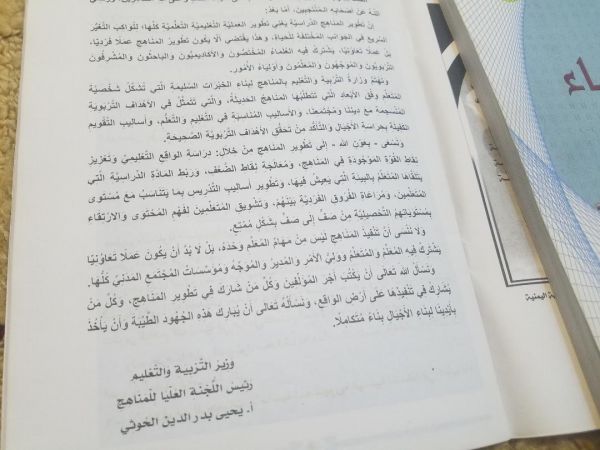 اللّه عن أصحابه المنتجبين، أمّا بعد:
إنّ تطوير المناهج الدّراسيّة يعني تطوير العمليّة التّعليميّة التّعلّميّة كلّها؛ لتواكب التّغيّر
السّريع في الجوانب المختلفة للحياة، وهذا يقتضي ألّا يكون تطوير المناهج عملًا فرديًا،
بل عملًا تعاونيًا، يشترك فيه العلماء المختصّون والأكاديميّون والباحثون والمشرفون
التّربويّون والموجّهون والمعلّمون وأولياء الأمور.
وتهتمّ وزارة التّربية والتّعليم بالمناهج لبناء الخبرات السّليمة الّتي تشكّل شخصيّة
المتعلّم وفق الأبعاد الّتي تتطلّبها المناهج الحديثة، والّتي تتمثّل في الأهداف التّربويّة
المنسجمة مع ديننا ومجتمعنا، والأساليب المناسبة في التّعليم والتّعلّم، وأساليب التّقويم
الكفيلة بحراسة الأجيال والتّأكّد من تحقّق الأهداف التّربويّة الصّحيحة.
ونسعى - بعون اللّه - إلى تطوير المناهج من خلال: دراسة الواقع التّعليميّ وتعزيز
نقاط القوّة الموجودة في المناهج، ومعالجة نقاط الضّعف، وربط المادّة الدّراسيّة الّتي
يتلقّاها المتعلّم بالبيئة الّتي يعيش فيها، وتطوير أساليب التّدريس بما يتناسب مع مستوى
المتعلّمين، ومراعاة الفروق الفرديّة بينهم، وتشويق المتعلّمين لفهم المحتوى والارتقاء
بمستوياتهم التّحصيليّة من صفّ إلى صفّ بشكل ممتع.
ولا ننسى أنّ تنفيذ المناهج ليس من مهامّ المعلّم وحده، بل لا بدّ أن يكون عملًا تعاونيًا
يشترك فيه المعلّم والمتعلّم ووليّ الأمر والمدير والموجّه ومؤسّسات المجتمع المدنيّ كلّها.
ونسأل اللّه تعالى أن يكتب أجر المؤلّفين وكلّ من شارك في تطوير المناهج، وكلّ من
يشارك في تنفيذها على أرض الواقع، ونسأله تعالى أن يبارك هذه الجهود الطّيّبة وأن يأخذ
بأيدينا لبناء الأجيال بناءً متكاملًا.
وزير التّربية والتّعليم
رئيس اللّجنة العليا للمناهج
أ. يحيى بدر الدين الحوثي
اء
ية اليمنية